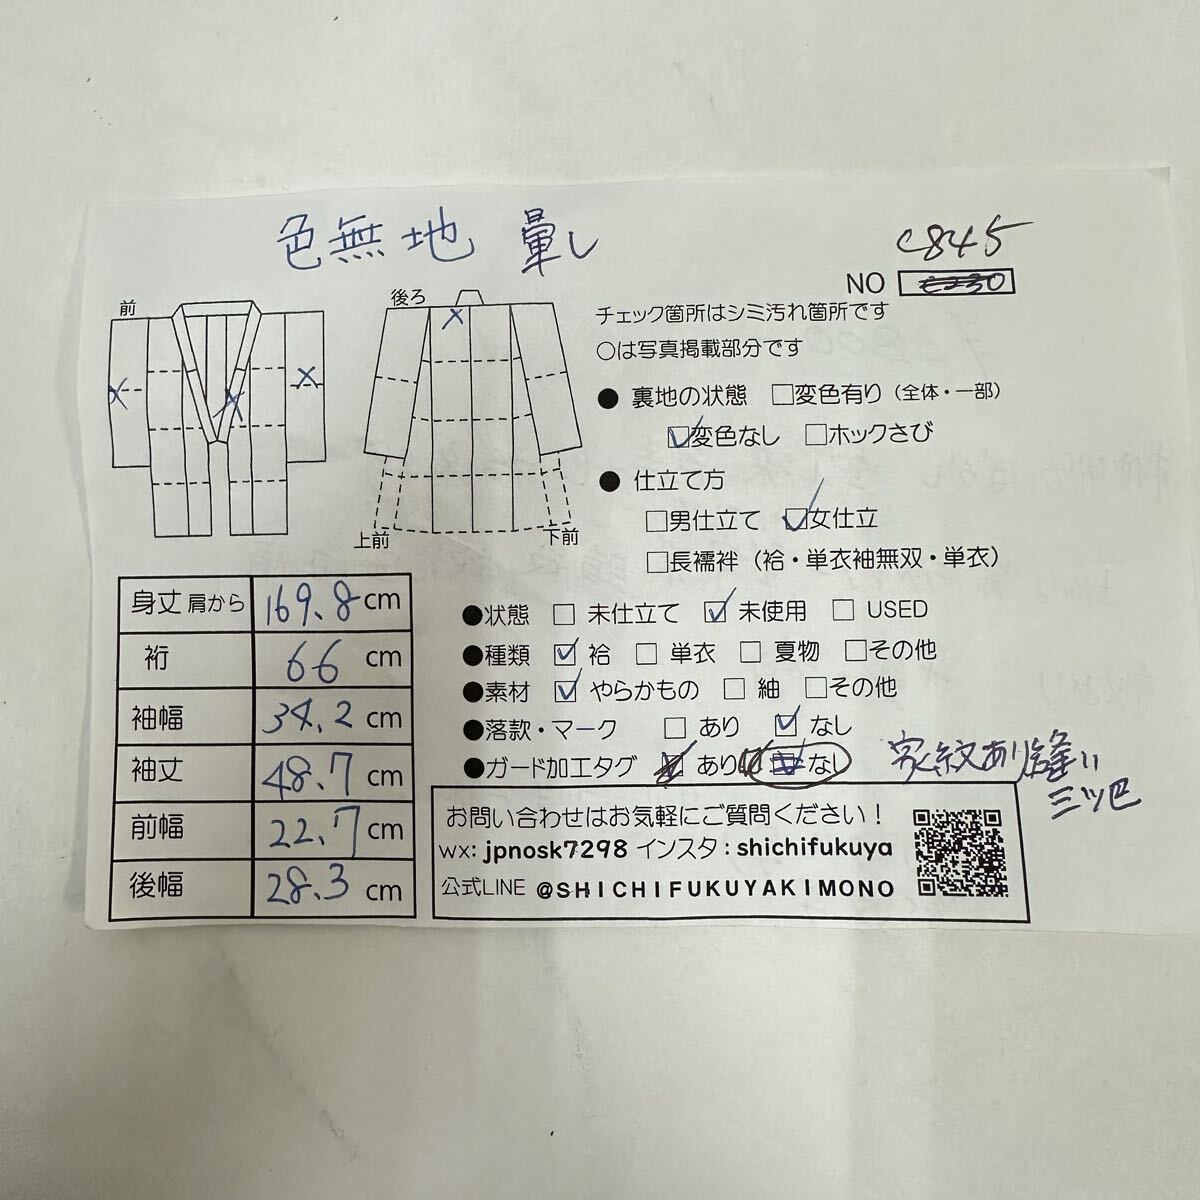 色無地 暈し
C845
NO
前
後ろ
上前
下前
チェック箇所はシミ汚れ箇所です
○は写真掲載部分です
● 裏地の状態 □変色有り（全体・一部）
☑変色なし □ホックさび
● 仕立て方
□男仕立て ☑女仕立
□長襦袢（袷・単衣袖無双・単衣）
●状態 □ 未仕立て ☑ 未使用 □ USED
●種類 ☑ 袷 □ 単衣 □ 夏物 □その他
●素材 ☑ やらかもの □ 紬 □その他
●落款・マーク □ あり ☑ なし
●ガード加工タグ ☑ あり ☑ なし
家紋あり縫い
三ツ巴
身丈 肩から 169.8 cm
裄 66 cm
袖幅 34.2 cm
袖丈 48.7 cm
前幅 22.7 cm
後幅 28.3 cm
お問い合わせはお気軽にご質問ください！
wx: jpnosk7298 インスタ：shichifukuya
公式LINE @SHICHIFUKUYAKIMONO